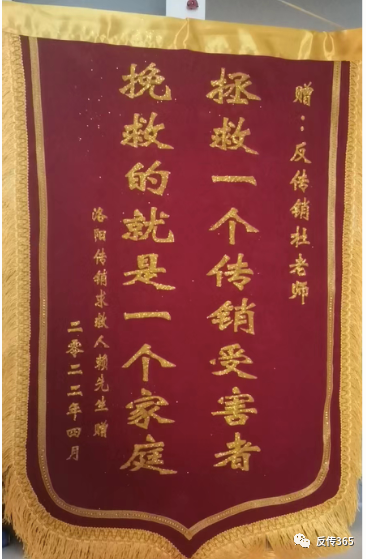 赠：反传销杜老师
拯救一个传销受害者
挽救的就是一个家庭
洛阳传销求救人赖先生赠
二零二二年四月
反传365